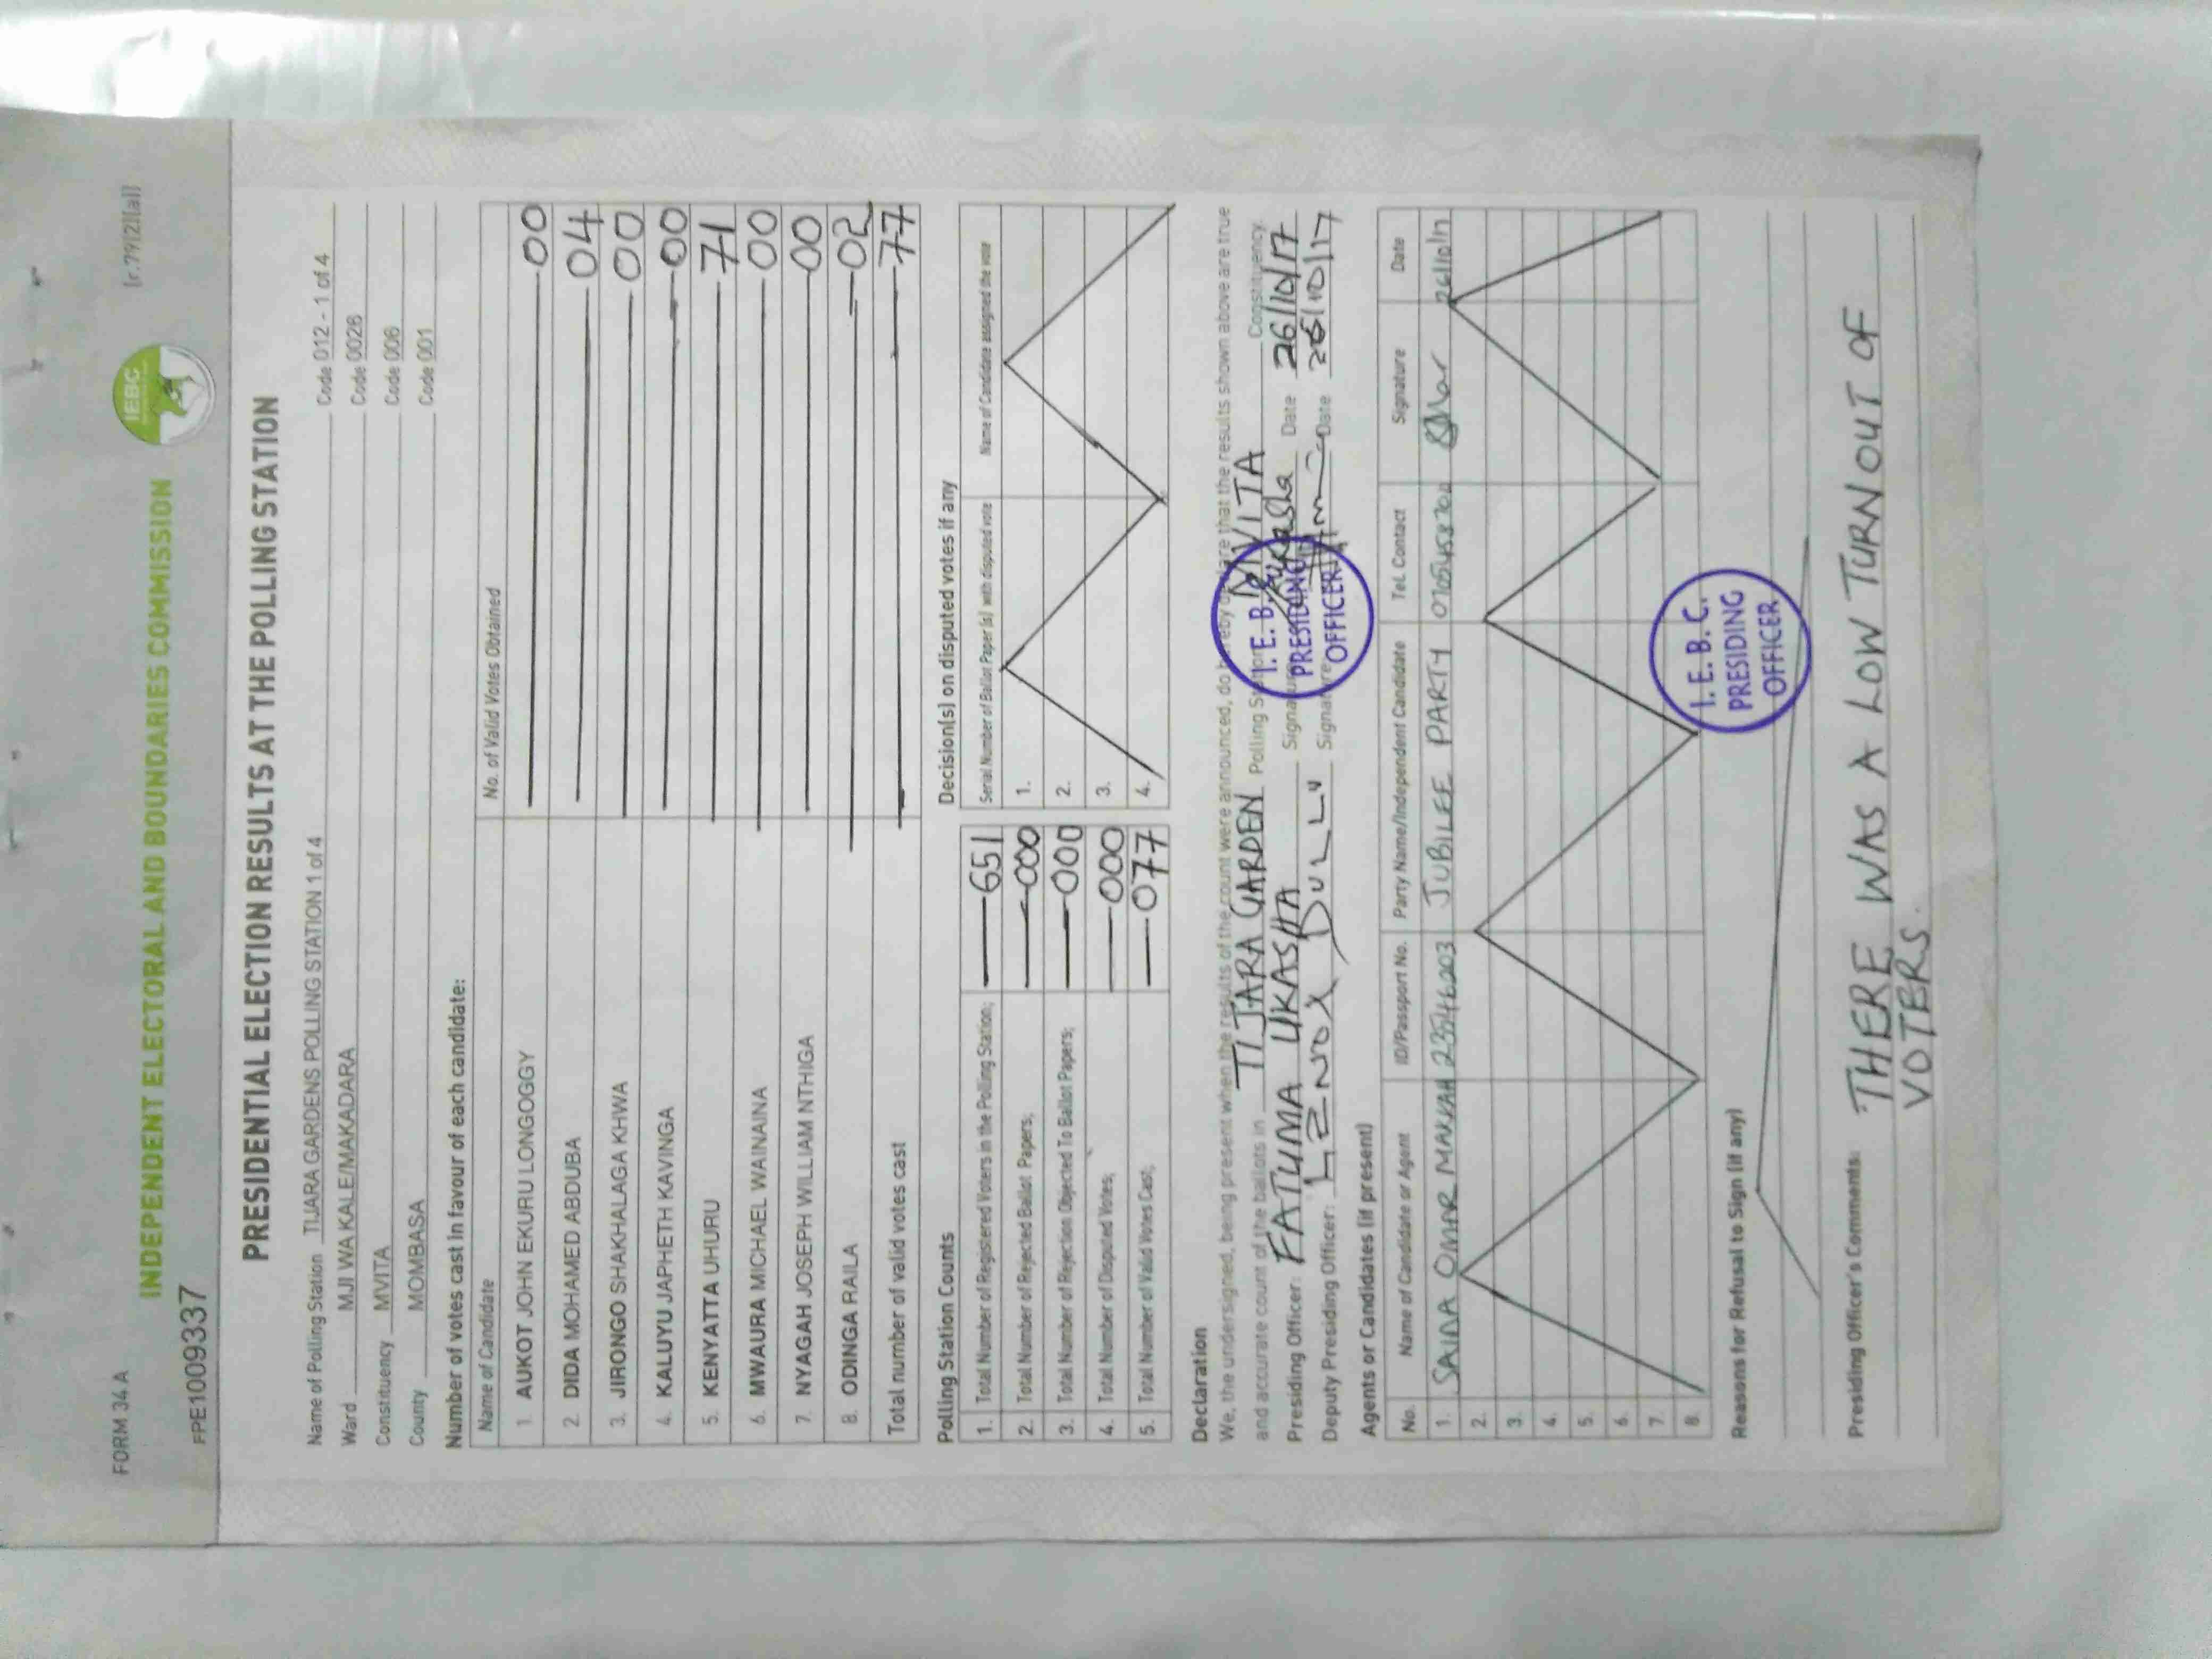 FORM 34 A
[r.79(2)(a)]
INDEPENDENT ELECTORAL AND BOUNDARIES COMMISSION
IEBC
FPE1009337
PRESIDENTIAL ELECTION RESULTS AT THE POLLING STATION
Name of Polling Station TIJARA GARDENS POLLING STATION 1 of 4 Code 012 - 1 of 4
Ward MJI WA KALE/MAKADARA Code 0026
Constituency MVITA Code 006
County MOMBASA Code 001
Number of votes cast in favour of each candidate:
Name of Candidate No. of Valid Votes Obtained
1. AUKOT JOHN EKURU LONGOGGY 00
2. DIDA MOHAMED ABDUBA 04
3. JIRONGO SHAKHALAGA KHWA 00
4. KALUYU JAPHETH KAVINGA 00
5. KENYATTA UHURU 71
6. MWAURA MICHAEL WAINAINA 00
7. NYAGAH JOSEPH WILLIAM NTHIGA 00
8. ODINGA RAILA 02
Total number of valid votes cast 77
Polling Station Counts
1. Total Number of Registered Voters in the Polling Station; 651
2. Total Number of Rejected Ballot Papers; 000
3. Total Number of Rejection Objected To Ballot Papers; 000
4. Total Number of Disputed Votes; 000
5. Total Number of Valid Votes Cast; 077
Decision(s) on disputed votes if any
Serial Number of Ballot Paper (s) with disputed vote Name of Candidate assigned the vote
1.
2.
3.
4.
Declaration
We, the undersigned, being present when the results of the count were announced, do hereby declare that the results shown above are true
and accurate count of the ballots in TIJARA GARDEN Polling Station MVITA Constituency.
Presiding Officer: FATUMA UKASHA Signature Ukasha Date 26/10/17
Deputy Presiding Officer: LENOX DULLU Signature Date 26/10/17
I. E. B. C.
PRESIDING
OFFICER
Agents or Candidates (if present)
No. Name of Candidate or Agent ID/Passport No. Party Name/Independent Candidate Tel. Contact Signature Date
1. SAIDA OMAR JUBILEE PARTY 26/10/17
2.
3.
4.
5.
6.
7.
8.
I. E. B. C.
PRESIDING
OFFICER
Reasons for Refusal to Sign (if any)
Presiding Officer's Comments: THERE WAS A LOW TURNOUT OF
VOTERS.